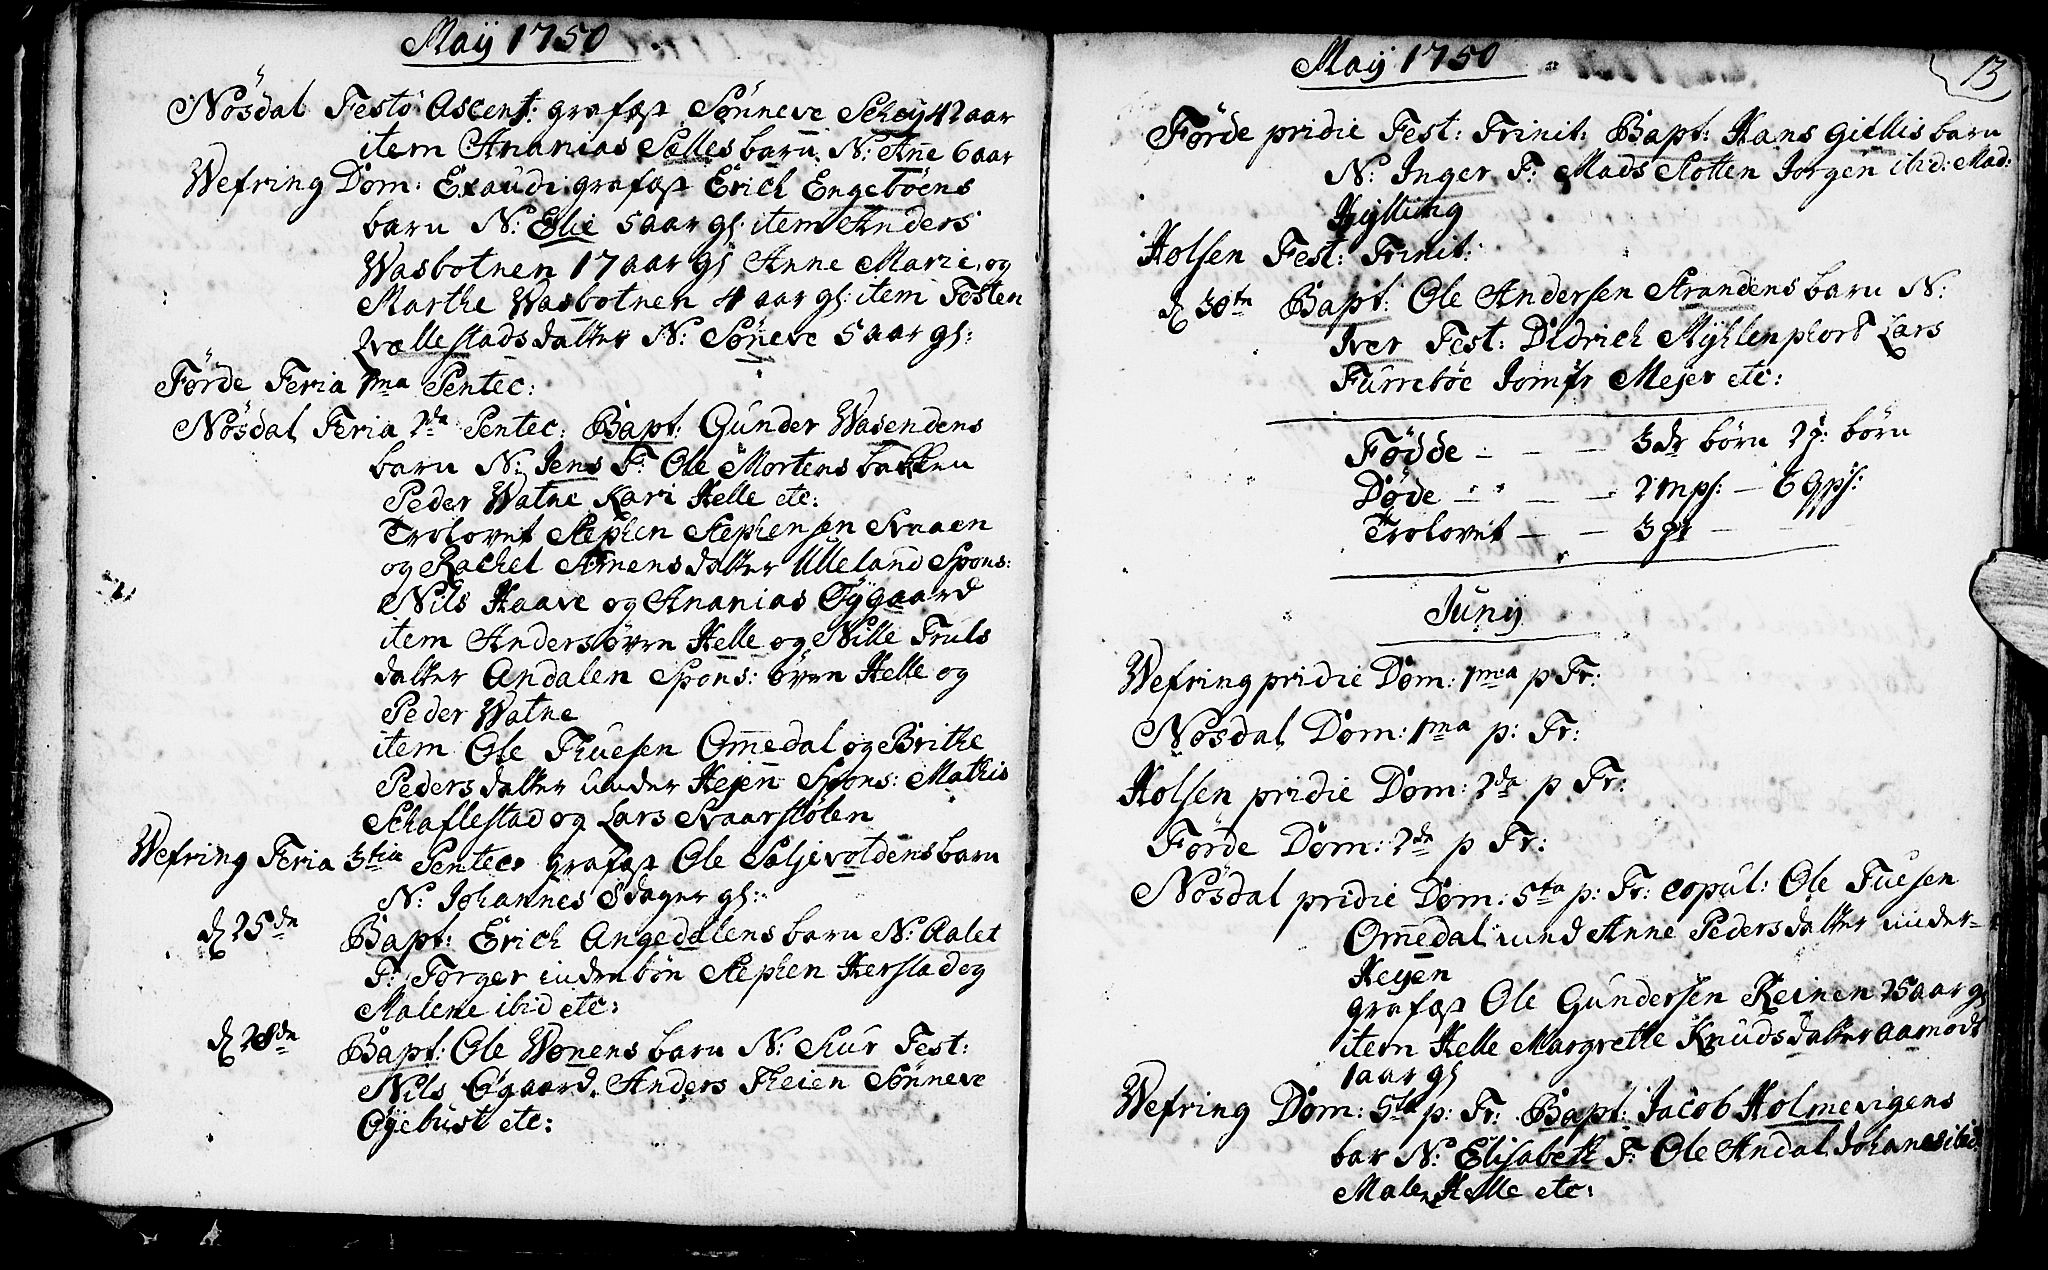 Maÿ 1750
Nøsdal Festo Ascent: grafæst Sønneve Schey 42 aar
item Ananias Solles barn N: Anne 6 aar
Wefring Dom: Exaudi grafæst Erich Engebøens
barn N: Elie 5 aar gl: item Anders
Wasbotnen 17 aar gl Anne Marie, og
Marthe Wasbotnen 4 aar gl: item Tosten
Qvællestads datter N: Sønneve 5 aar gl:
Førde Feria 1ma Pentec:
Nøsdal Feria 2da Pentec: Bapt: Gunder Wasendens
barn N: Jens F: Ole Mortens bakken
Peder Watne Kari Helle etc:
Trolovet Stephen Stephensen Kvaaen
og Rachel Simensdatter Ulleland Spons:
Nils Haave og Ananias Øÿgaard
item Anders Iøren Helle og Nille Truls
datter Andalen Spons: Iøren Helle og
Peder Watne
item Ole Thuesen Ommedal og Brithe
Pedersdatter under Hejen Spons: Mathis
Schaflestad og Lars Kvaarstølen
Wefring Feria 3tia Pentec: grafæst Ole Soljevoldens barn
N: Johannes 8 dager gl:
d 25de Bapt: Erich Angedalens barn N: Aalet
F: Torger indrebøn Stephen Herstad og
Malene ibid etc:
d 28de Bapt: Ole Wonens barn N: Siur Test:
Nils Øgaard. Anders Theien Sønneve
Øÿebust etc:
Maÿ 1750
13
Førde pridie Fest: Trinit: Bapt: Hans Gillis barn
N: Inger F: Mads Slotten Jorgen ibid: Mad:
Kylling
Holsen Fest: Trinit:
d 30te Bapt: Ole Andersen Strandens barn N:
Iver Test: Didrich Myhlenphort Lars
Furrebøe Jomfr Mejer etc:
Fødde - - - 3 dr børn 2 p: børn
Døde - - - - 2 mps: - 6 qps:
Trolovet - - 3 pr
Junÿ
Wefring pridie Dom: 1ma p Tr:
Nøsdal Dom: 1ma p: Tr:
Holsen pridie Dom: 2da p Tr:
Førde Dom: 2da p Tr:
Nøsdal pridie Dom: 5ta p: Tr: copul: Ole Tuesen
Ommedal und Anne Pedersdatter under-
Heyen
grafæst Ole Gundersen Reinen 25 aar gl
item Helle Margrette Knudsdatter Aamodt
1 aar gl
Wefring Dom: 5ta p: Tr: Bapt: Jacob Holmevigens
bar N: Elisabeth F: Ole Andal Johanes ibid:
Malene Helle etc: